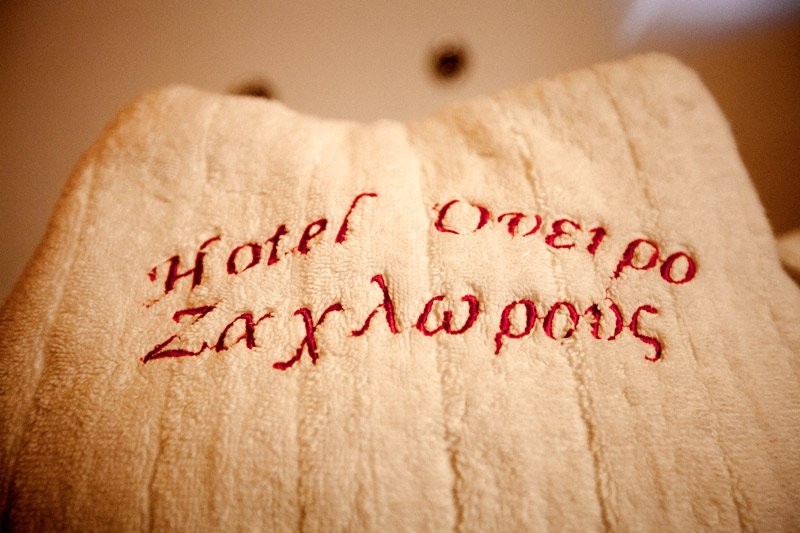 Hotel Ονειρο
Ζαχλωρους